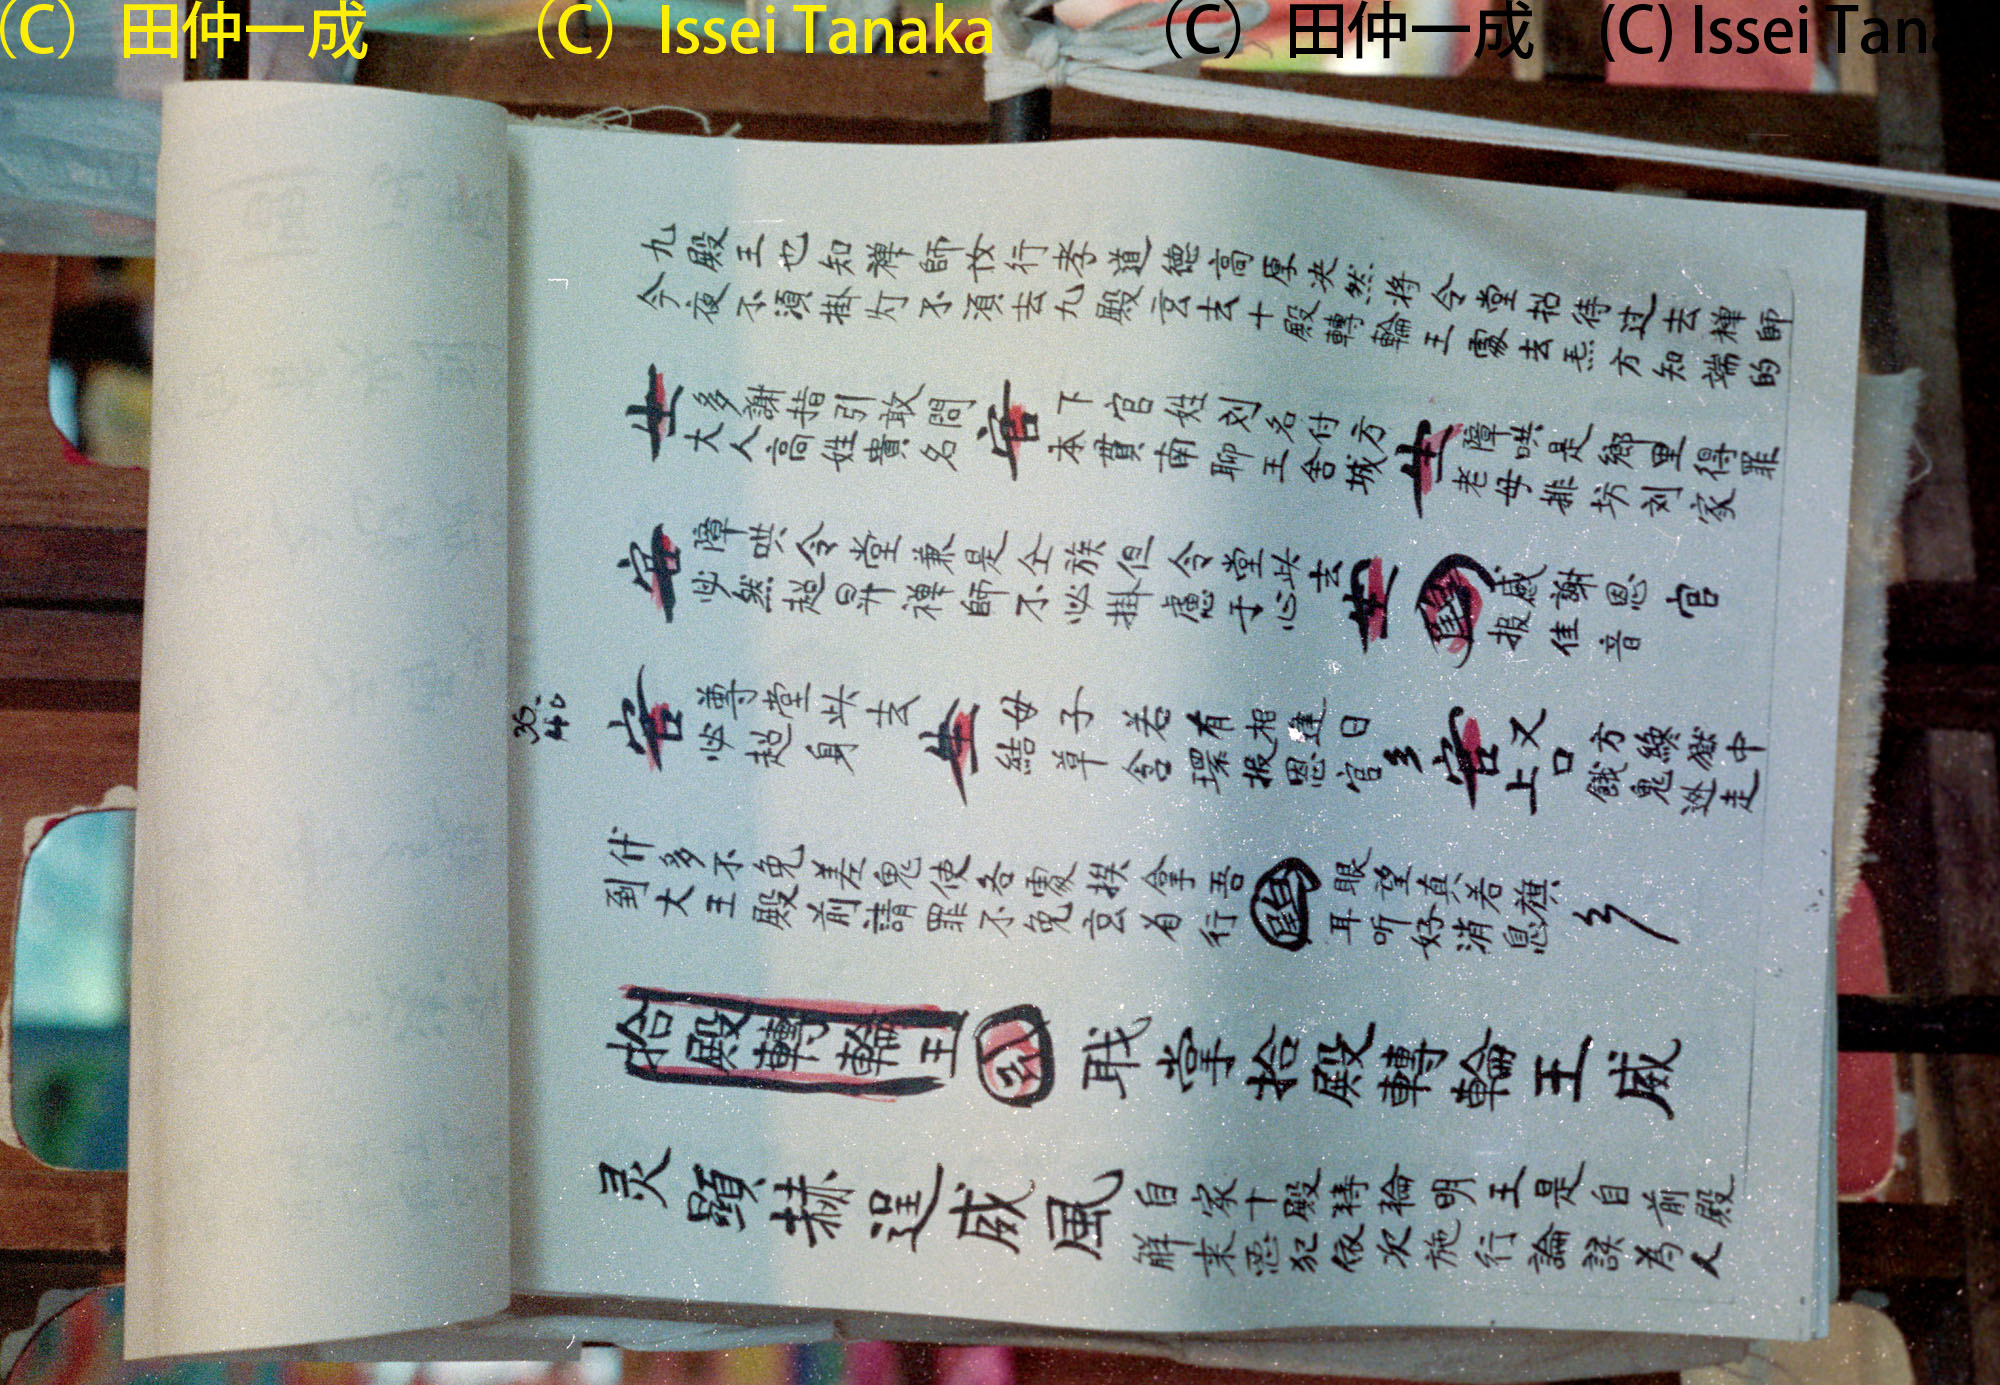 (C) 田仲一成 (C) Issei Tanaka (C) 田仲一成 (C) Issei Tana
九殿王也知禅師故行孝道德高厚决然将令堂招待过去禅師
今夜不須掛灯不須去九殿宮去十殿轉輪王處去 方知端的
生 多謝指引敢問
大人高姓貴名
官 下官姓刘名付方
本貫南聊王舍城
生 障哄是鄉里得罪
老母排坊刘家
官 障哄令堂兼是仝族但令堂此去
必然超昇禅師不必掛慮于心
生 感謝恩官
报佳音
35.40
官 尊堂此去
必超身
生 母子若有相逢日
結草含環报恩官
官 又口方綫獄中
上餓鬼逃走
什多不免差鬼使各處挨拿吾
到大王殿前請罪不免宮省行
眼望真若旗
耳听好消息
拾殿轉輪王
公 职掌拾殿轉輪王威
灵顯赫逞威風
自家十殿轉輪明王是自前殿
解来惡犯依次施行論誤為人